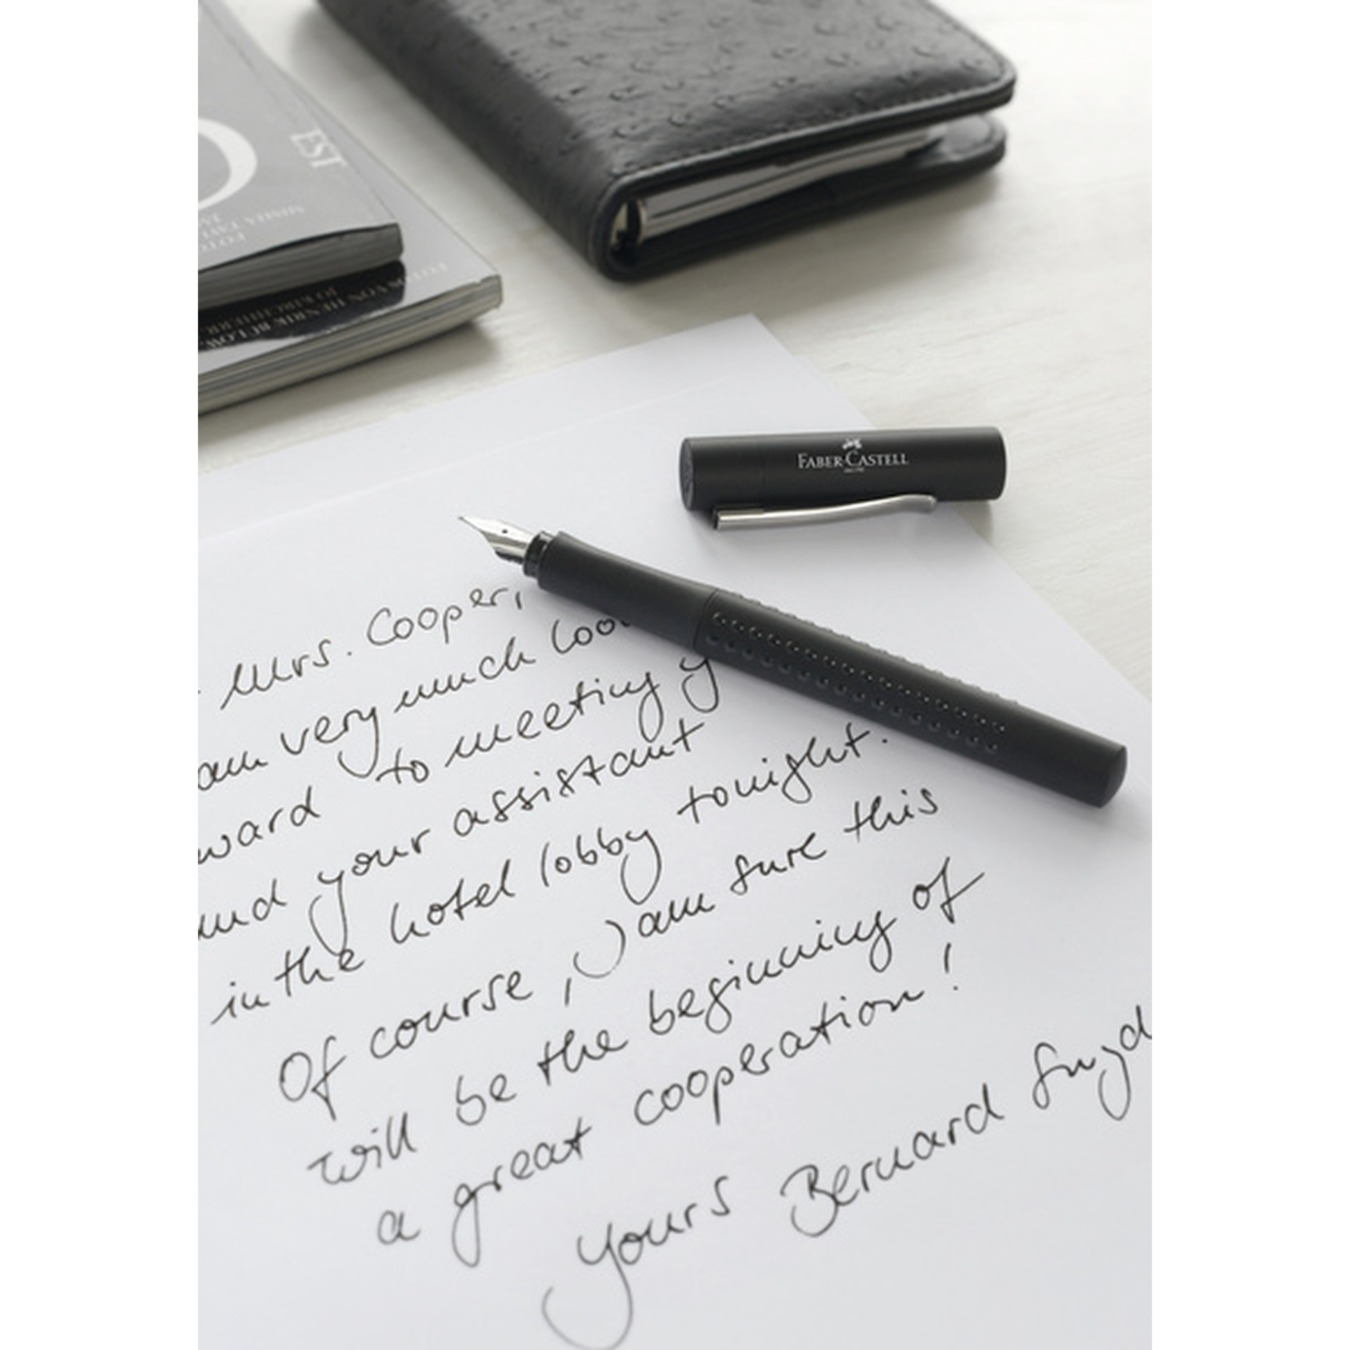 EST
FABER-CASTELL
Mrs. Cooper,
am very much loo
ward to meeting y
and your assistant
in the hotel lobby tonight.
Of course, I am sure this
will be the beginning of
a great cooperation!
yours Bernard